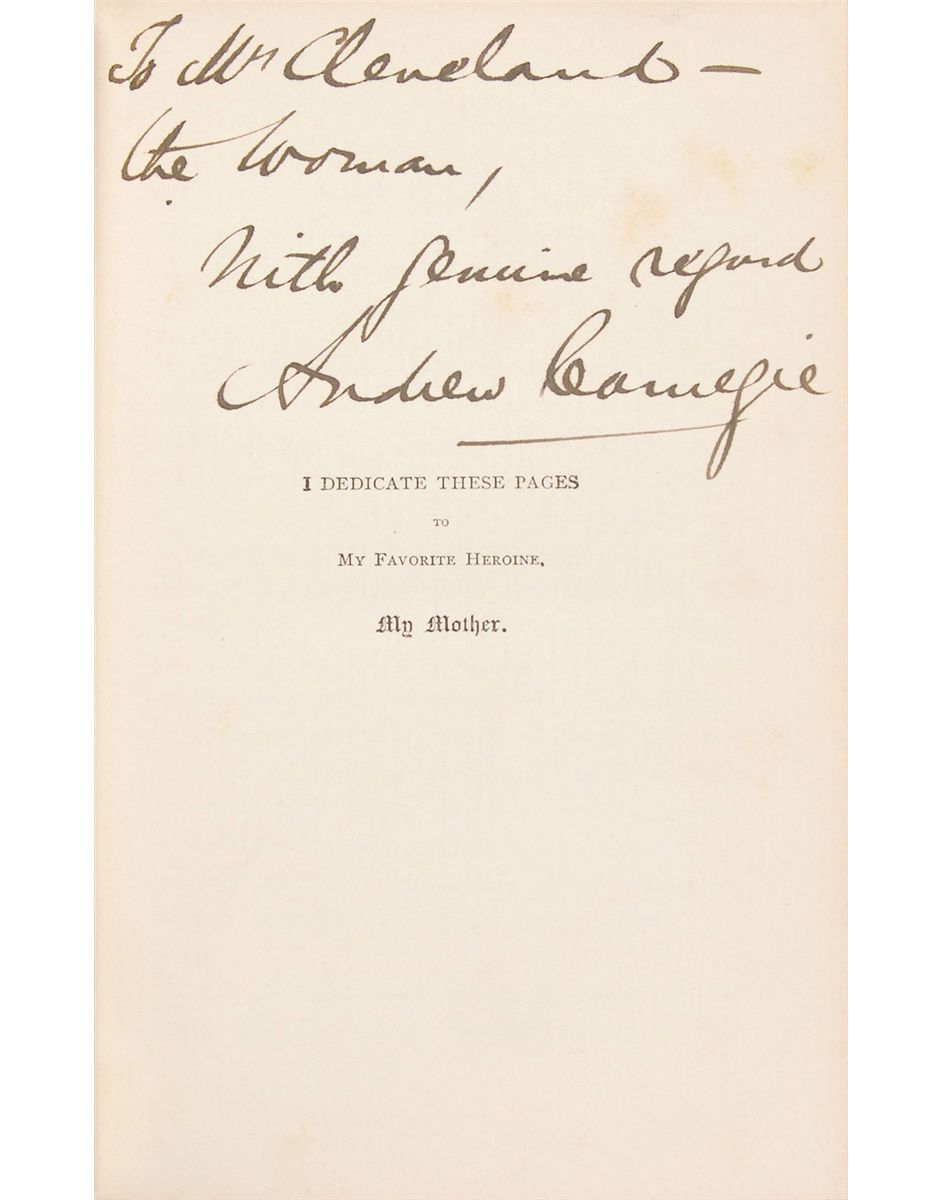 To Mrs Cleveland —
the Woman,
With genuine regard
Andrew Carnegie
I DEDICATE THESE PAGES
TO
MY FAVORITE HEROINE,
My Mother.